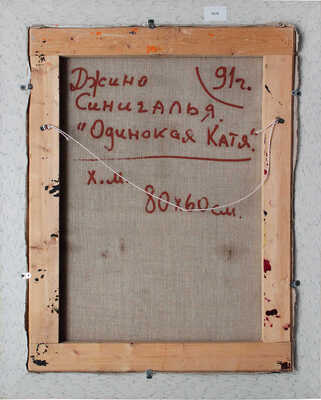 Джино 91г.
Синигалья.
"Одинокая Катя".
х.м. 80х60см.